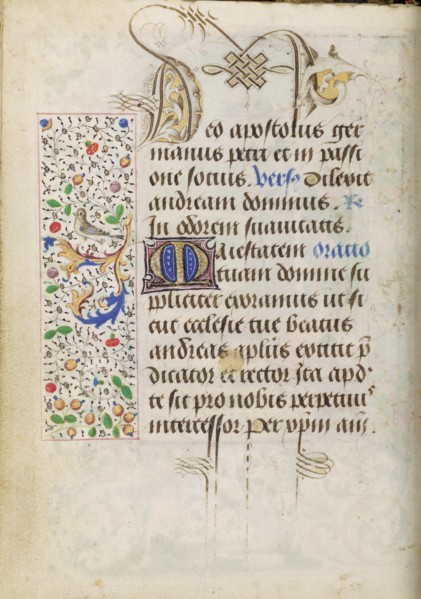 Deo apostolus ger
manus petri et in passi
one socius. Vers Dilexit
andream dominus. R
In odorem suavitatis.
Maiestatem Oratio
tuam domine su
ppliciter exoramus ut si
cut ecclesie tue beatus
andreas aplus extitit p̄
dicator et rector ita apd
te sit pro nobis perpetuus
intercessor per xpm am̄.